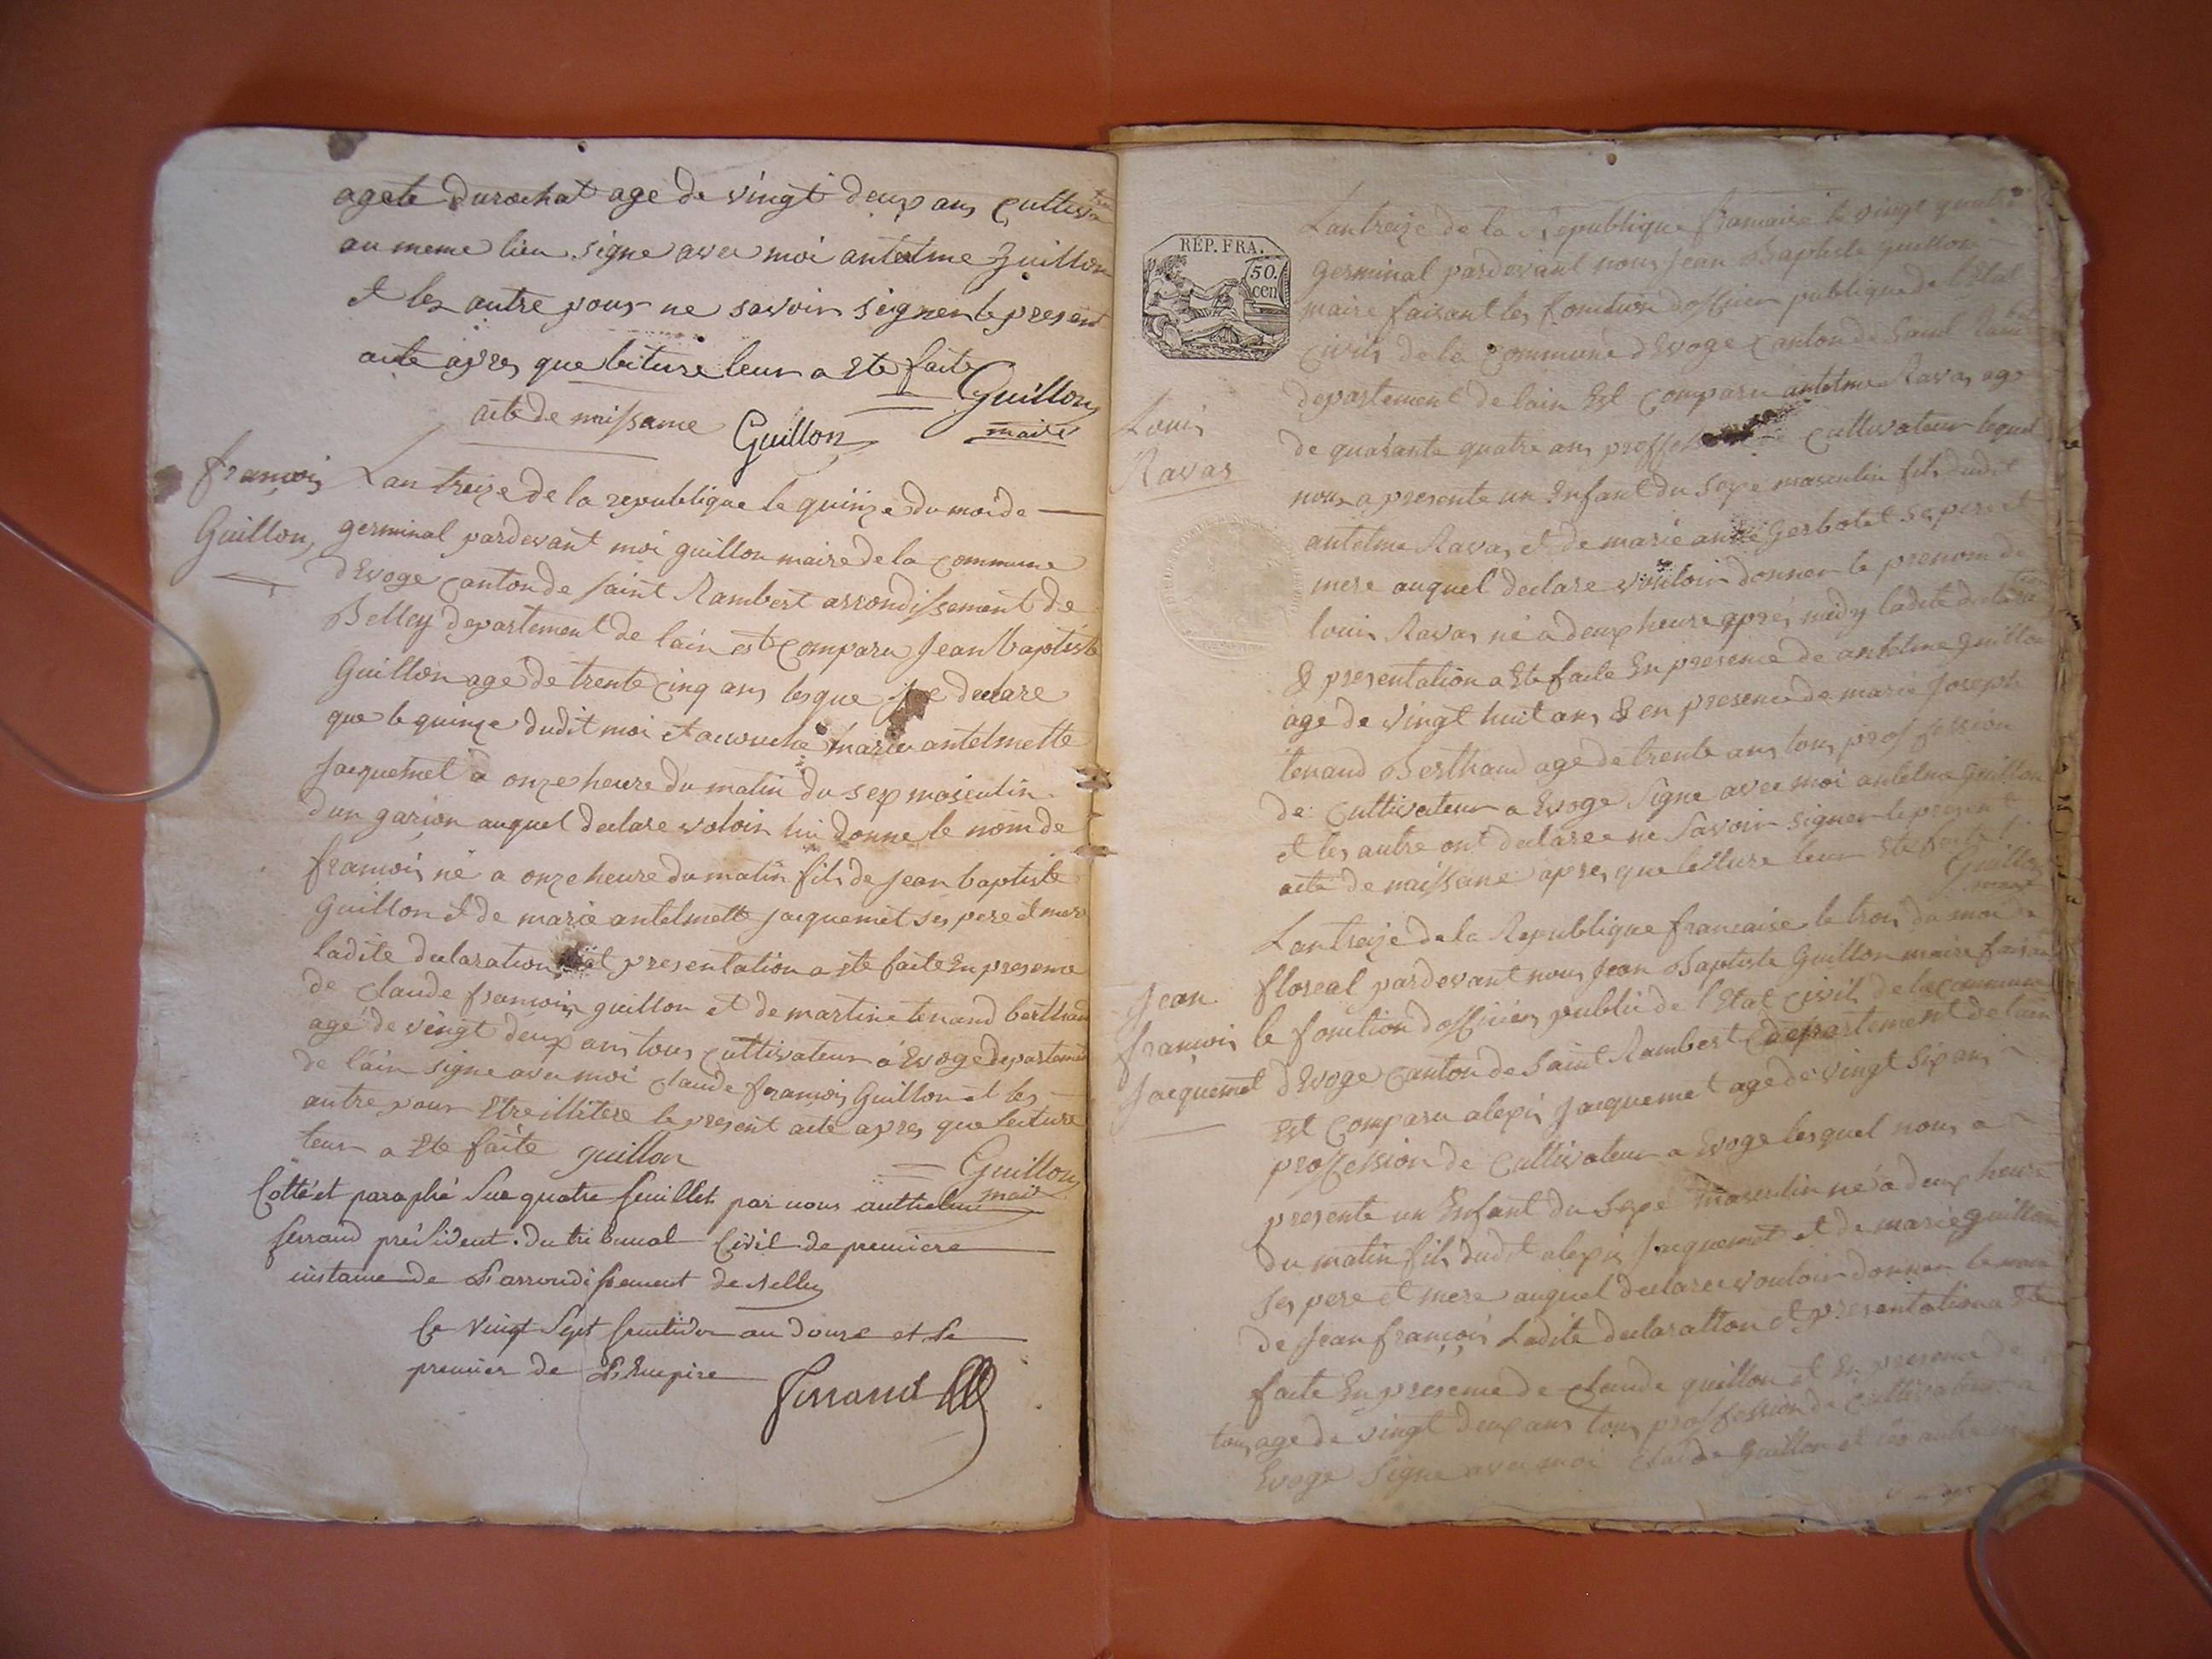 agete Durochat age de vingt deux ans Cultiva
au meme lieu signe avec moi antelme guillon
et les autre pour ne savoir signer le present
acte apres que lecture leur a ete faite
Guillon
maire
acte de naissance Guillon
francois
Guillon
Lan treize de la republique le quinze du moi de
germinal pardevant moi guillon maire de la commune
d'Evoge canton de saint Rambert arrondissement de
Belley departement de lain est comparu jean baptiste
Guillon age de trente cinq ans lesque declare
que le quinze dudit moi et acouche marie antelmette
jacquemet a onze heure du matin du sex masculin
d'un garçon auquel declare voloir lui donne le nom de
francois né a onze heure du matin fils de jean baptiste
Guillon et de marie antelmette jacquemet ses pere et mere
ladite declaration et presentation a ete faite en presence
de claude francois guillon et de martine tenand berthand
agé de vingt deux ans tous cultivateur a Evoge departement
de lain signe avec moi claude françois Guillon et les
autre pour Etre illitere le present acte apres que lecture
leur a ete faite guillon
Guillon
maire
Cotté et paraphé sur quatre feuillets par nous anthelme
ferrand président du tribunal Civil de premiere
instance de L'arrondissement de Belley
Ce vingt Sept fructidor an douze et Le
premier de L'Empire
ferrand
RÉP. FRA.
50.
cen
Louis
Ravas
Lan treize de la Republique francaise le vingt quatre
germinal pardevant nous jean Baptiste guillon
maire faisant les fonction d'officier publique de l'Etat
civils de la commune d'Evoge canton de Saint Rambert
departement de lain Est comparu antelme Ravas age
de quarante quatre ans cultivateur lequel
nous a presente un Enfant du sexe masculin fils dudit
antelme Ravas et de marie anne Gerbotet ses pere et
mere auquel declare vouloir donner le prenom de
louis Ravas né a deux heure aprés midy ladite declaration
& presentation a Ete faite En presence de antelme guillon
age de vingt huit ans & en presence de marie joseph
tenand Berthand age de trente ans tous profession
de cultivateur a Evoge signe avec moi antelme guillon
et les autre ont declaree ne savoir signer le present
acte de naissance apres que lecture leur Ete faite
Guillon
maire
jean
françois
Jacquemet
Lan treize de la Republique francaise le trois du moi de
floreal pardevant nous jean Baptiste Guillon maire faisant
le fonction d'officier public de l'Etat civils de la commune
d'Evoge canton de Saint Rambert departement de lain
Est comparu alexis jacquemet age de vingt six ans
proffession de cultivateur a Evoge lesquel nous a
presente un Enfant du sexe masculin né a deux heure
du matin fils dudit alexis jacquemet et de marie guillon
ses pere et mere auquel declaree vouloir donner le nom
de jean françois Ladite declaration et presentation a Ete
faite En presence de claude guillon et En presence de
tous age de vingt deux ans tous proffession de cultivateur a
Evoge signe avec moi claude guillon et les autre